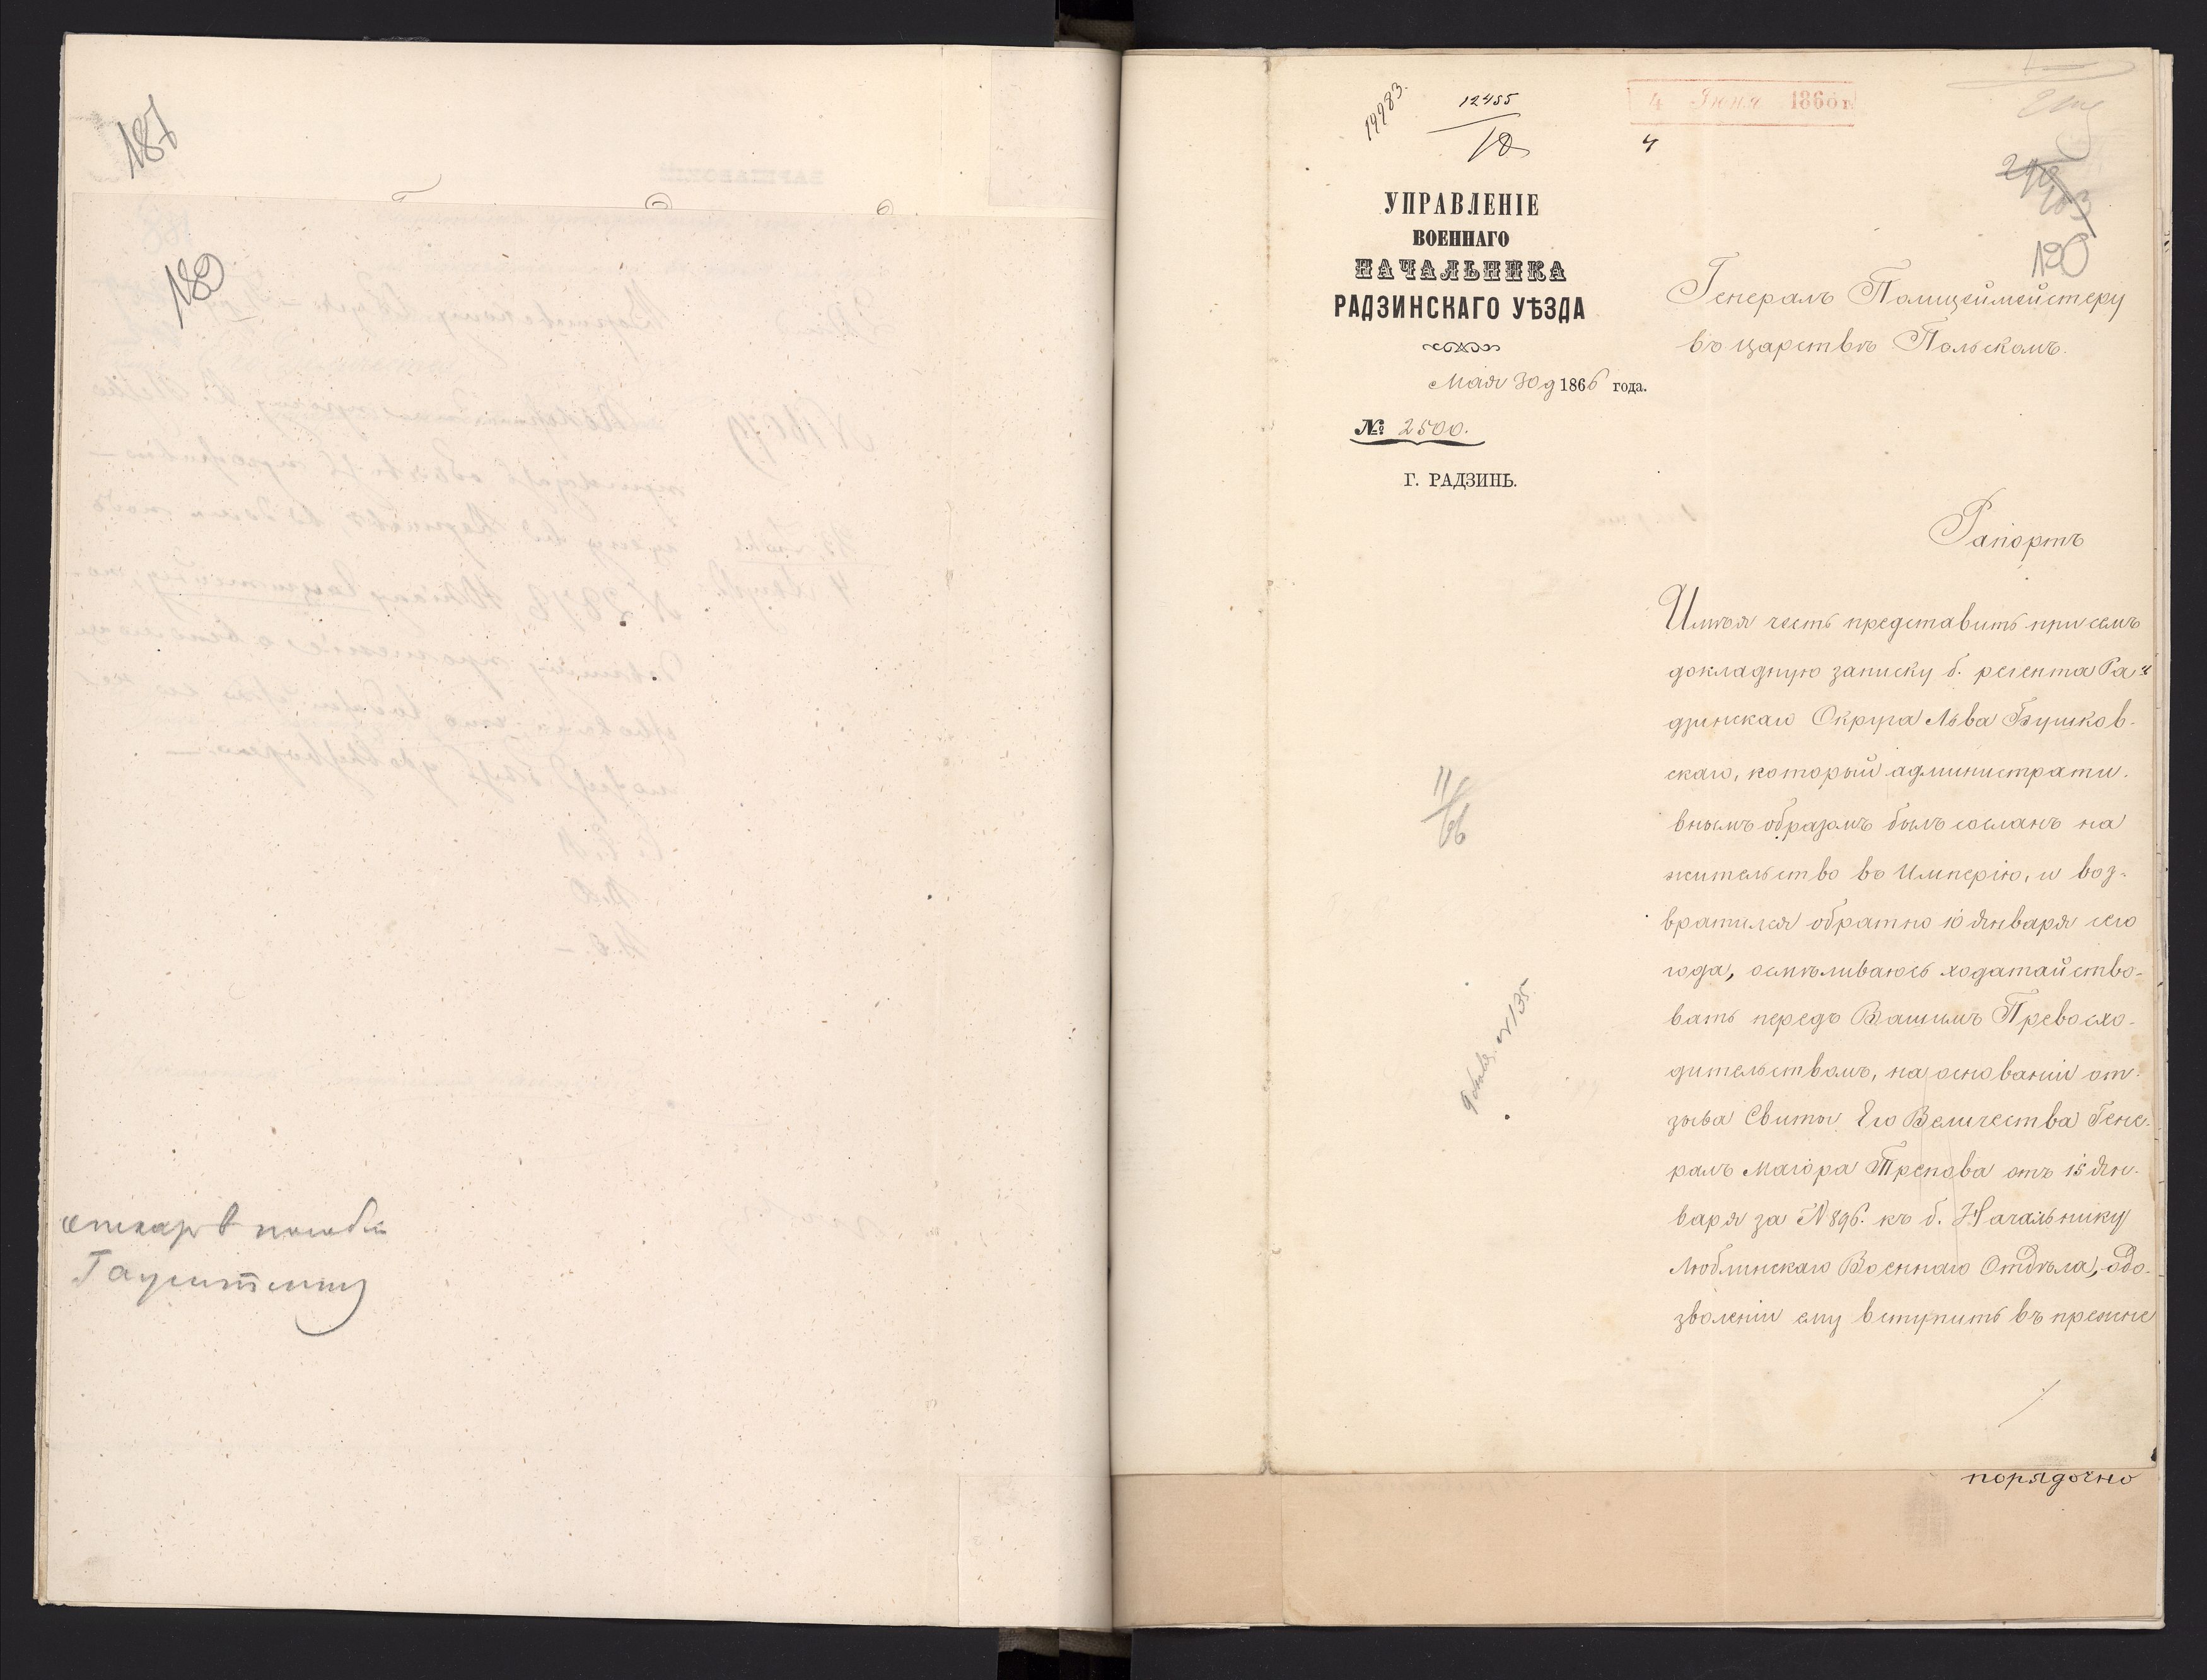 187
189
Гаушт
14983.
12455
18
4 Июня 1866 г.
4
203
190
УПРАВЛЕНІЕ
ВОЕННАГО
НАЧАЛЬНИКА
РАДЗИНСКАГО УѢЗДА
Мая 30 д 1866 года.
№ 2500.
Г. РАДЗИНЬ.
Генералъ Полицеймейстеру
въ царствѣ Польскомъ.
Рапортъ
Имѣя честь представить при семъ
докладную записку б. регента Ра-
дзинскаго Округа Льва Бушков-
скаго, который администрати-
внымъ образомъ былъ сосланъ на
жительство въ Имперію, и воз-
вратился обратно 10 Января сего
года, осмѣливаюсь ходатайство-
вать передъ Вашимъ Превосхо-
дительствомъ, на основаніи от-
зыва Свиты Его Величества Гене-
ралъ Маіора Трепова отъ 15 Ян-
варя за N 896. къ б. Начальнику
Люблинскаго Военнаго Отдѣла, о до-
зволеніи ему вступить въ прежне
11/66
N 135.
порядочно